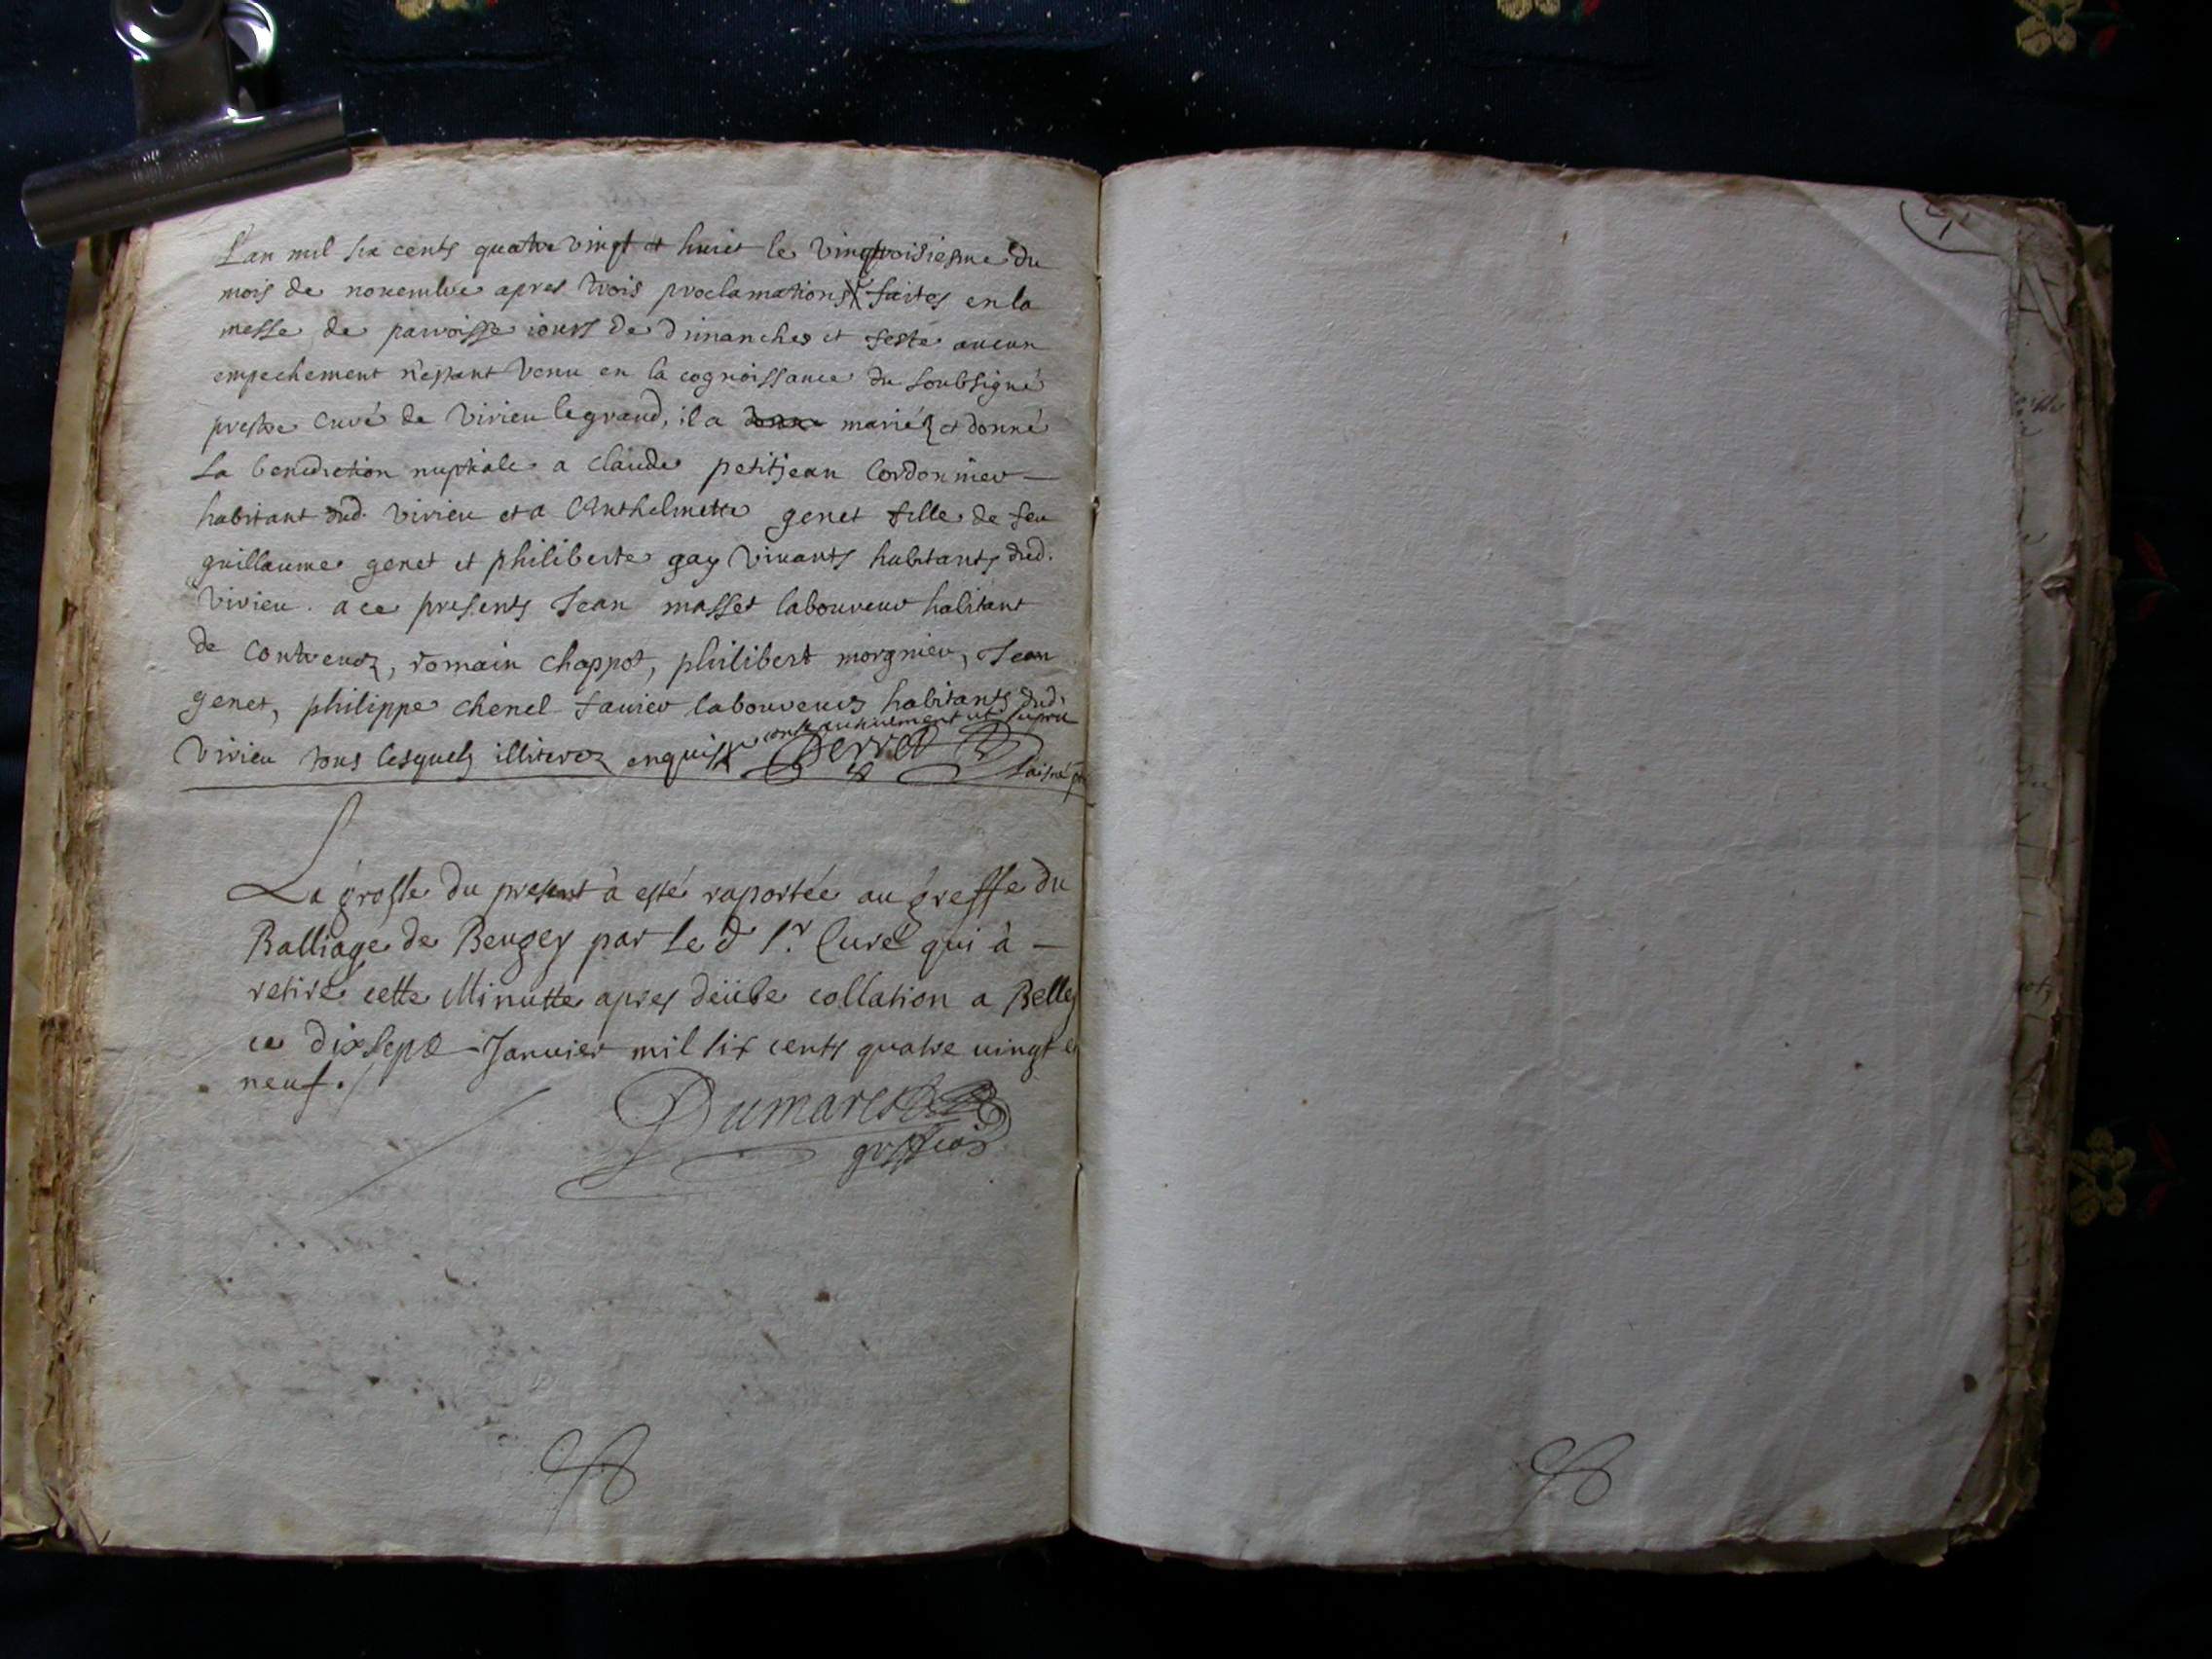 L'an mil six cents quatre vingt et huict le vingtroisiesme du
mois de nouembre apres trois proclamations faites en la
messe de parroisse iours de dimanches et feste aucun
empechement n'estant venu en la cognoissance du soubsigné
prestre curé de Virieu le grand, il a donné mariéz et donné
la benediction nuptiale a claude petitjean Cordonnier
habitant dud. Virieu et a Anthelmette genet fille de feu
guillaume genet et philiberte gay viuants habitants dud.
Virieu. a ce presents Jean masset laboureur habitant
de Contreuoz, romain chappot, philibert morgnieu, Jean
genet, philippe chenel laboureurs habitants dud.
ut supra
Virieu tous lesquels illiterez enquis Perret
La grosse du present à esté raportée au greffe du
Balliage de Beugey par le d sr. Curé qui à
retiré cette Minutte apres deübe collation a Belley
ce dix sept Januier mil six cents quatre uingt et
neuf.
Dumarest
greffier